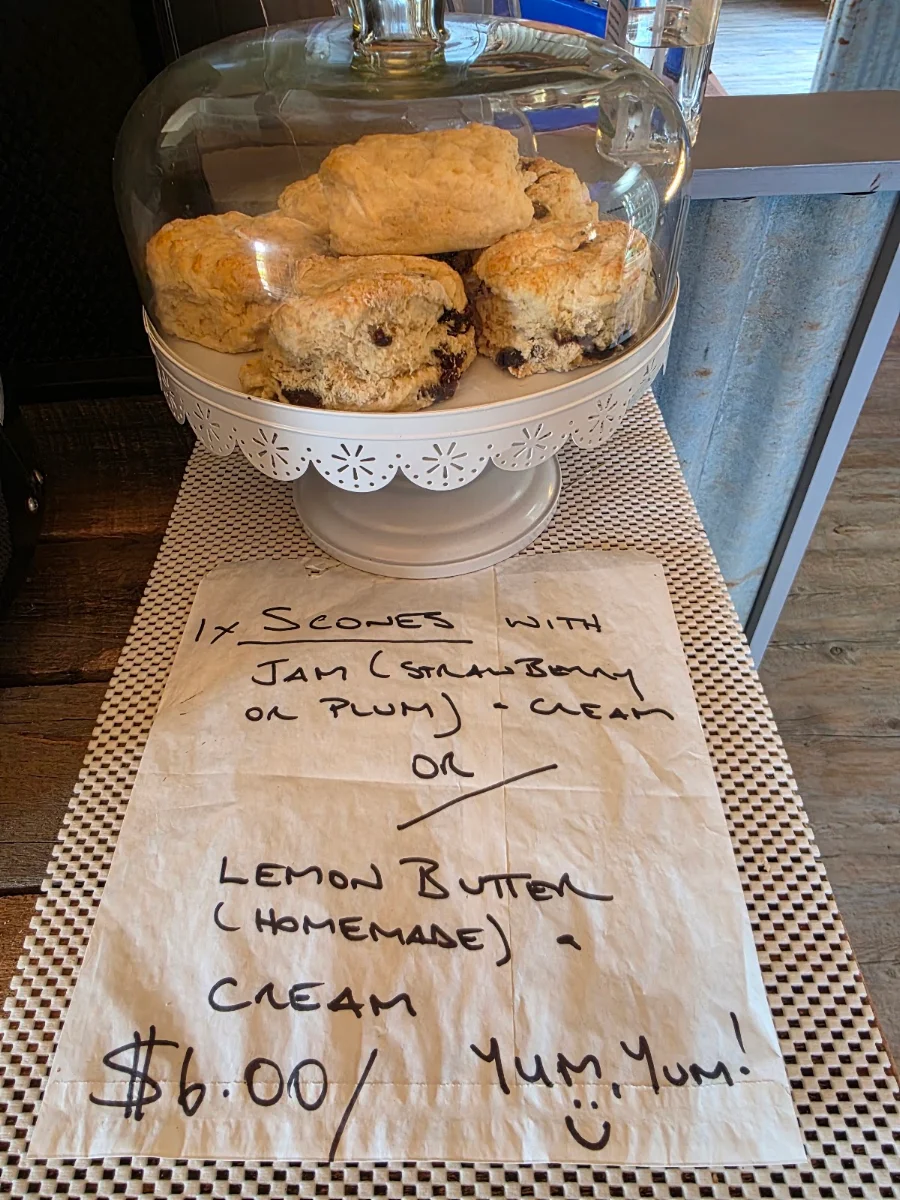 1x SCONES WITH
JAM (STRAWBERRY
OR PLUM) & CREAM
OR
LEMON BUTTER
(HOMEMADE) &
CREAM
$6.00/ YUM, YUM!